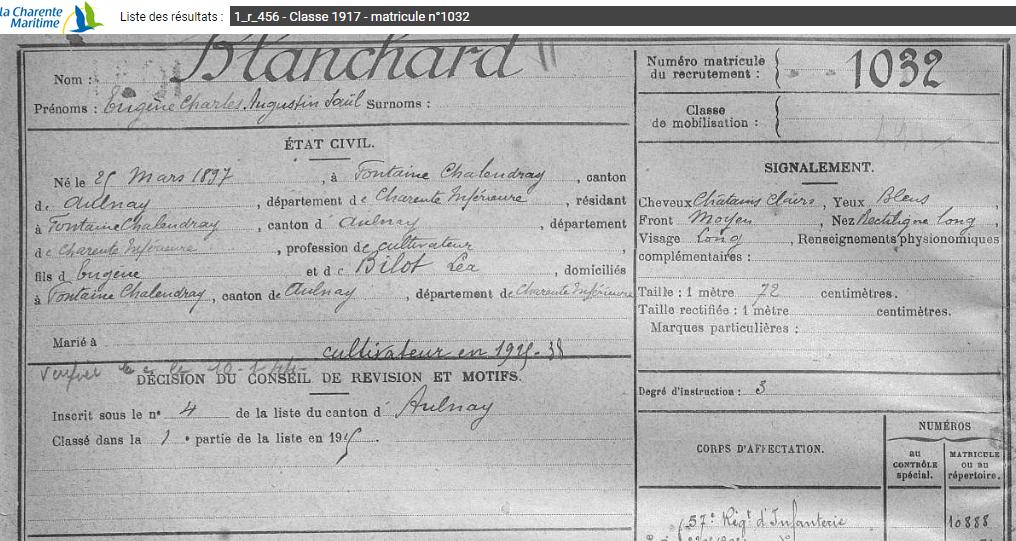 la Charente
Maritime
Liste des résultats : 1_r_456 - Classe 1917 - matricule n°1032
Nom : Blanchard
Prénoms : Eugène Charles Augustin Saül Surnoms :
ÉTAT CIVIL.
Né le 25 Mars 1897, à Fontaine Chalendray, canton
d'Aulnay, département de Charente Inférieure, résidant
à Fontaine Chalendray, canton d'Aulnay, département
de Charente Inférieure, profession de cultivateur
fils d'Eugène et de Bilot Léa, domiciliés
à Fontaine Chalendray, canton de Aulnay, département de Charente Inférieure
Marié à
cultivateur en 1925-38
DÉCISION DU CONSEIL DE REVISION ET MOTIFS.
Inscrit sous le n° 4 de la liste du canton d'Aulnay
Classé dans la 1e partie de la liste en 1915.
Numéro matricule
du recrutement : 1032
Classe
de mobilisation :
SIGNALEMENT.
Cheveux Châtains Clairs, Yeux Bleus,
Front Moyen, Nez Rectiligne long
Visage Long, Renseignements physionomiques
complémentaires :
Taille : 1 mètre 72 centimètres.
Taille rectifiée : 1 mètre centimètres.
Marques particulières :
Degré d'instruction : 3
CORPS D'AFFECTATION.
NUMÉROS
au
CONTRÔLE
spécial.
MATRICULE
ou au
répertoire.
57e Régt d'Infanterie 10888